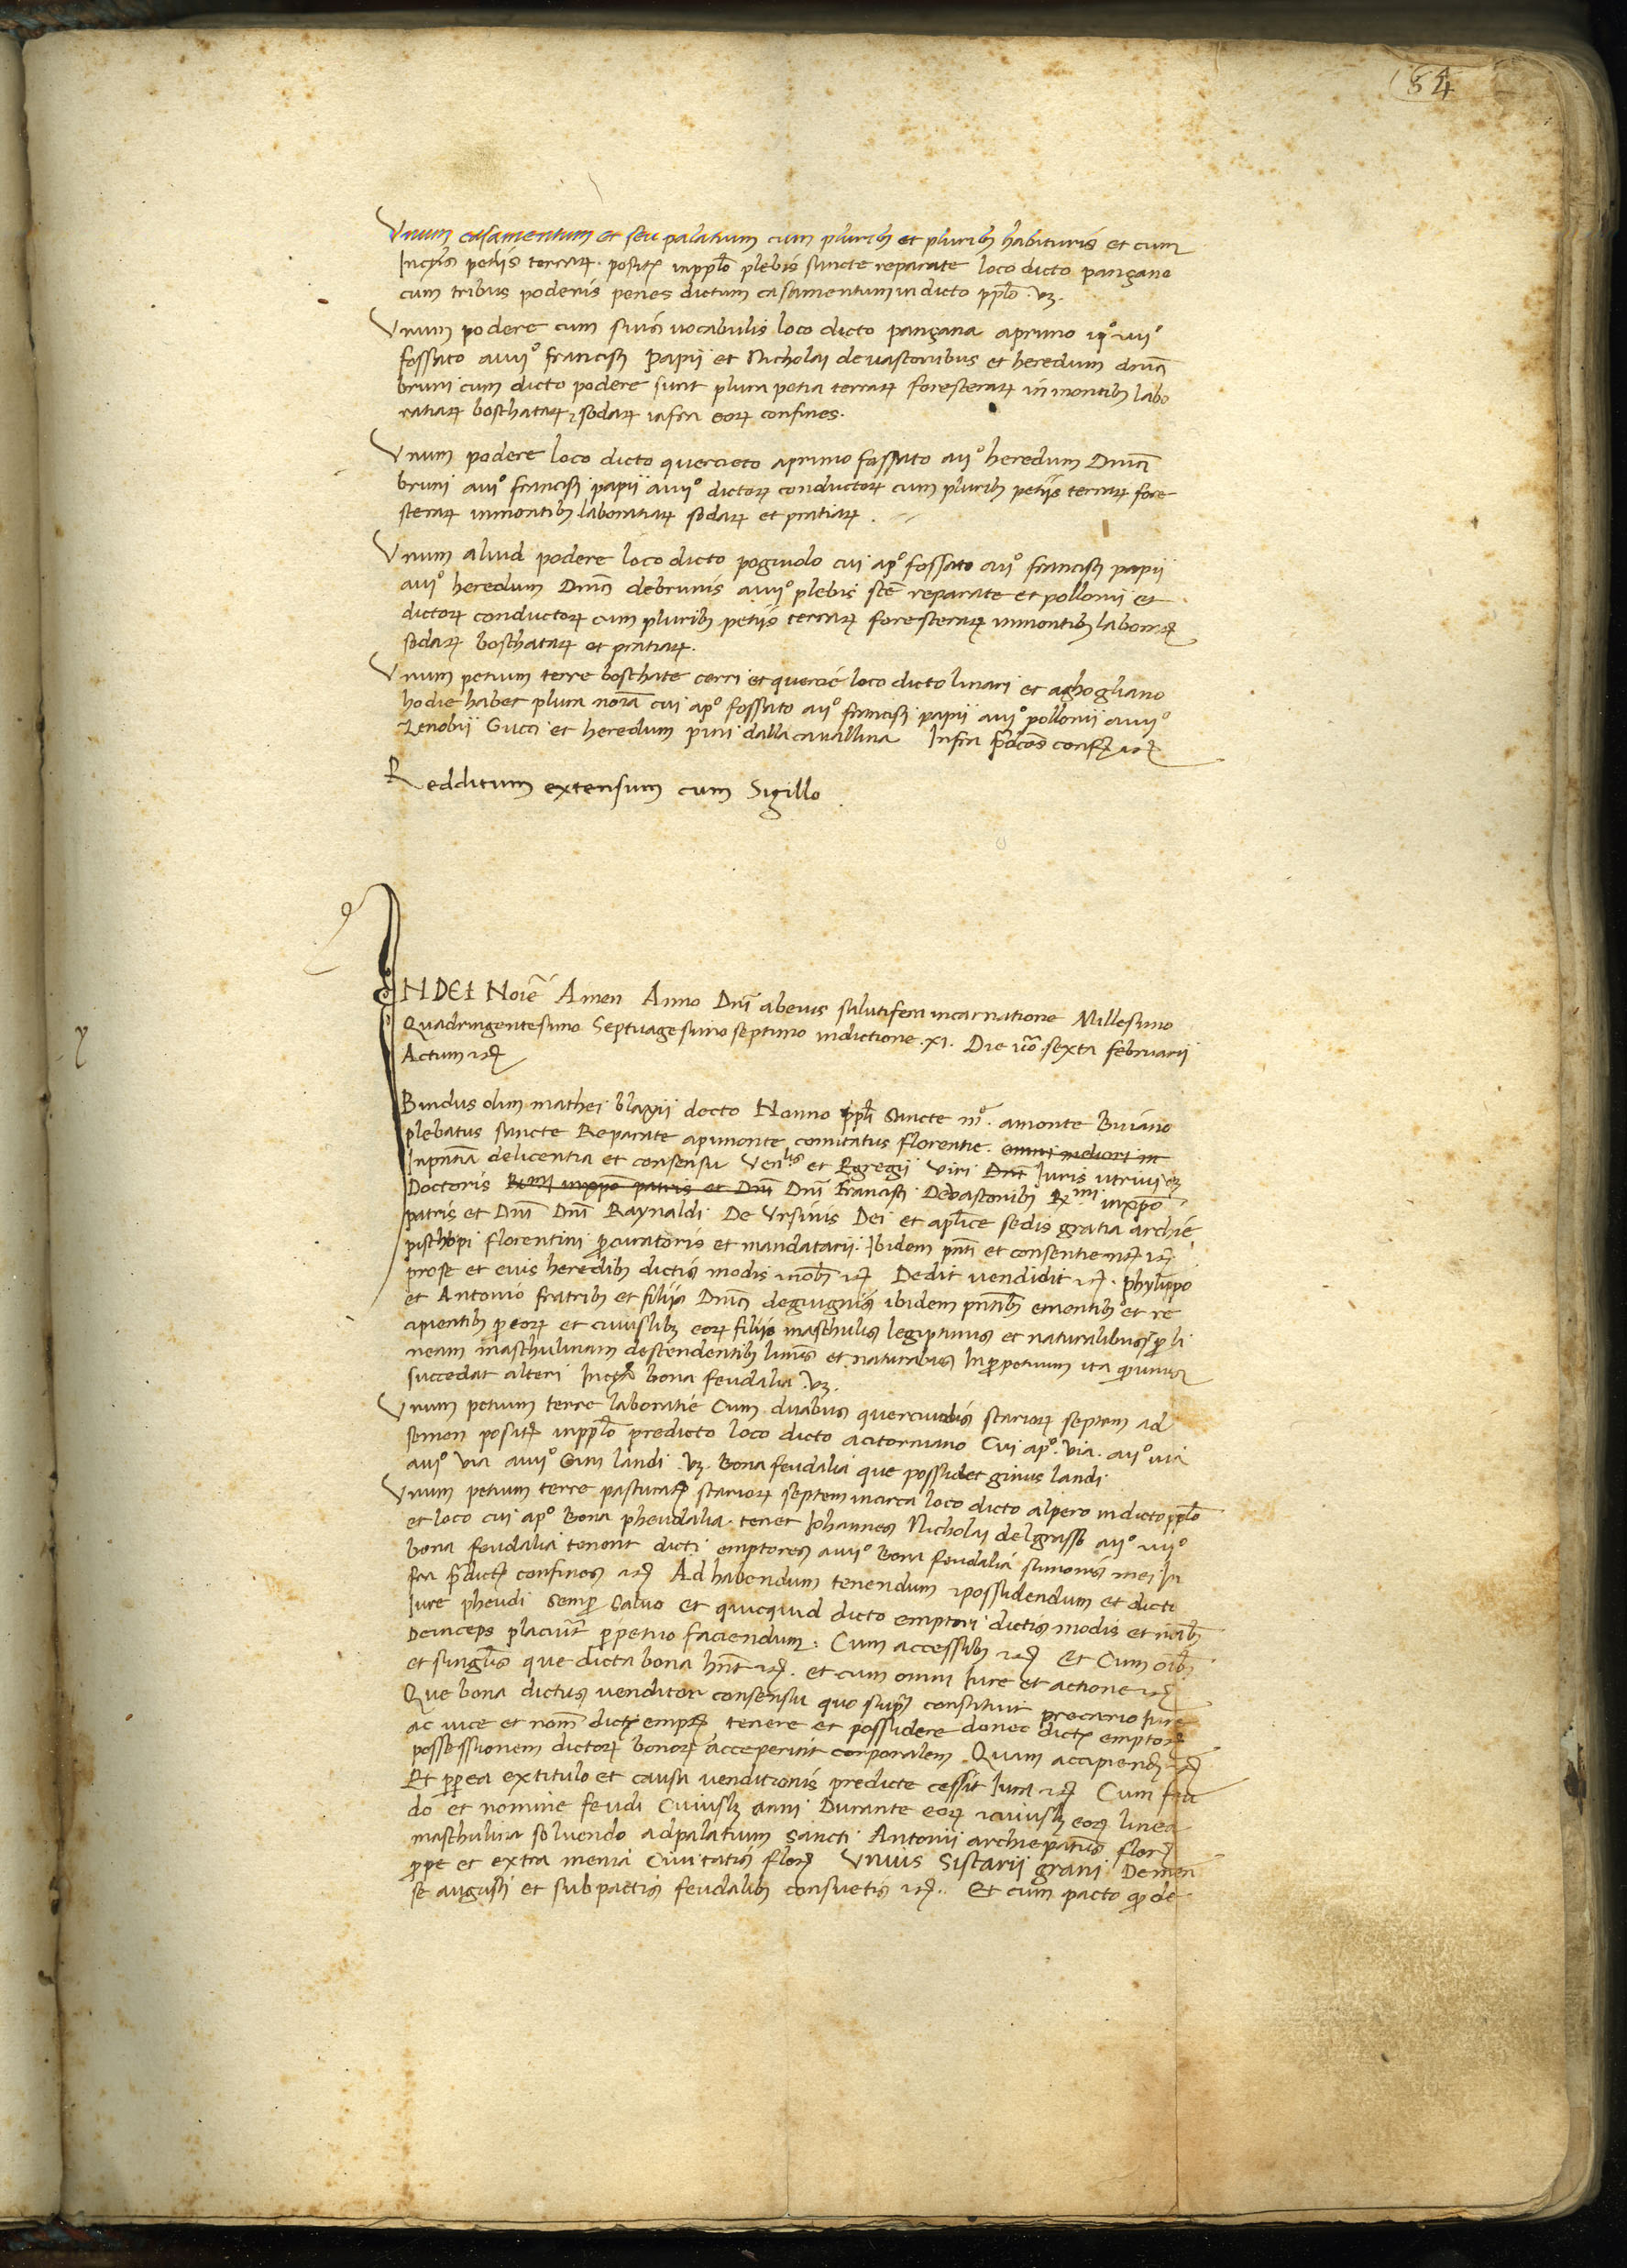 84
Vnum casamentum et seu palatium cum plurib3 et plurib3 habituris et cum
Infrxis petiis terraꝝ. positꝭ in pplo plebis sancte reparate loco dicto pançano
cum tribus poderis penes dictum casamentum in dicto pplo. vꝫ.
Vnum podere cum suis vocabulis loco dicto pançana a primo ijº iiiº
fossato a iiiiº francisci papii et Nicholai de vastonibus et heredum dnici
bruni cum dicto podere sunt plura petia terraꝝ foresteraꝝ in montib3 labo
ratiaꝝ boschataꝝ ⁊ sodaꝝ infra eoꝝ confines.
Vnum podere loco dicto querceto a primo fossato a ijº heredum Dnici
bruni a iiiº francisci papii a iiiiº dictoꝝ conductoꝝ cum plurib3 petiis terraꝝ fore
steraꝝ in montib3 laboratiaꝝ sodaꝝ et pratiaꝝ.
Vnum aliud podere loco dicto pogiuolo cui a pº fossato a ijº francisci papii
a iiiº heredum Dnici de brunis a iiiiº plebis scē reparate et pollonii et
dictoꝝ conductoꝝ cum plurib3 petiis terraꝝ foresteraꝝ in montib3 laboraꝝ
sodaꝝ boschataꝝ et pratiaꝝ.
Vnum petium terre boschate cerri et quercie loco dicto linari et aghogliano
hodie habet plura noīa cui a pº fossato a ijº francisci papii a iiiº pollonii a iiiiº
Zenobii Gucci et heredum pini dalla cauallina Infra p̄dcōs confꝭ ⁊cꝭ
Redditum extensum cum Sigillo
IN DEI Noīe Amen Anno Dnī ab eius salutifera incarnatione Millesimo
Quadringentesimo Septuagesimo septimo indictione .xi. Die vō. sexta februarii
Actum ⁊cꝭ
Bindus olim mathei blaxii decto Nonno ppli Sancte mͤ. a monte Buiano
plebatus sancte Reparate a pimonte comitatus florentie.
In pn̄tia de licentia et consensu Venlis et Egregii Viri Iuris utriusqꝫ
Doctoris Dnī Francisci De vastonibꝫ Rmi in xpō
patris et Dnī Dnī Raynaldi De Vrsinis Dei et aplice sedis gratia archie
pischopi florentini ꝓcuratoris et mandatarii. Ibidem pn̄ti et consentientꝭ ⁊cꝭ
pro se et eius heredib3 dictis modis ⁊ noīb3 ⁊cꝭ Dedit vendidit ⁊cꝭ. phylippo
et Antonio fratrib3 et filiis Dnici de giugnis ibidem pn̄tib3 ementib3 et re
cipientib3 ꝓ eoꝝ et cuiuslib3 eoꝝ filiis maschulis legiptimis et naturalibus ꝑ li
neam maschulinam descendentib3 limis et naturalibus In ꝑpetuum ita ꝙ unus
succedat alteri Infrxa bona feudalia .vꝫ.
Vnum petium terre laboratie Cum duabus quercuobis starioꝝ septem ad
semen positꝭ in pplo predicto loco dicto a citornano Cui a pº. via. a ijº via
a iiiº via a iiiiº Gini landi .vꝫ. Bona feudalia que possidet ginus landi
Vnum petium terre pasturatꝭ starioꝝ septem in circa loco dicto alpero in dicto pplo
et loco cui a pº Bona pheudalia. tenet Iohannes Nicholai del grasso a ijº iiiº
bona feudalia tenent dicti emptores a iiiiº bona feudalia simonis mei In
fra p̄dictꝭ confines ⁊cꝭ Ad habendum tenendum ⁊ possidendum et dicti
Iure pheudi semꝑ Saluo et quicquid dicto emptori dictis modis et noīb3
Deinceps placuerit ꝑpetuo faciendum. Cum accessib3 ⁊cꝭ Et Cum oīb3
et singlis que dicta bona hn̄t ⁊cꝭ. et cum omni Iure et actione ⁊cꝭ
Que bona dictus venditor consensu quo supra constituit precario Iure
ac vice et nomī dictꝭ emptꝭ tenere et possidere donec dictꝭ emptorꝭ
possessionem dictoꝝ bonoꝝ acceperint corporalem Quam accipiendi ⁊cꝭ
Et ꝓpterea ex titulo et causa venditionis predicte cessit Iura ⁊cꝭ Cum feu
do et nomine feudi Cuiuslꝫ anni Durante eoꝝ ⁊ cuiuslꝫ eoꝝ linea
maschulina soluendo ad palatium sancti Antonii archiepatus florꝭ
ꝓpe et extra menia Ciuitatis florꝭ Vnius Sistarii grani De men
se augusti et sub pactis feudalib3 consuetis ⁊cꝭ. Et cum pacto ꝙ de